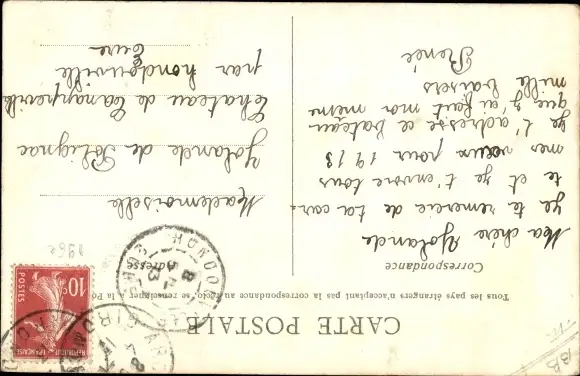 CARTE POSTALE
Tous les pays étrangers n'acceptant pas la correspondance au recto, se renseigner à la Po
Correspondance
Ma chère Yolande
Je te remercie de ta car-
te et je t'envoie tous
mes vœux pour 1913
Je t'adresse ce bateau
que j'ai fait moi même
mille baisers
Renée
Adresse
Mademoiselle
Yolande de Polignac
Chateau de
par hondouville
Eure
10c
POSTES
REPUBLIQUE FRANÇAISE
HONDO